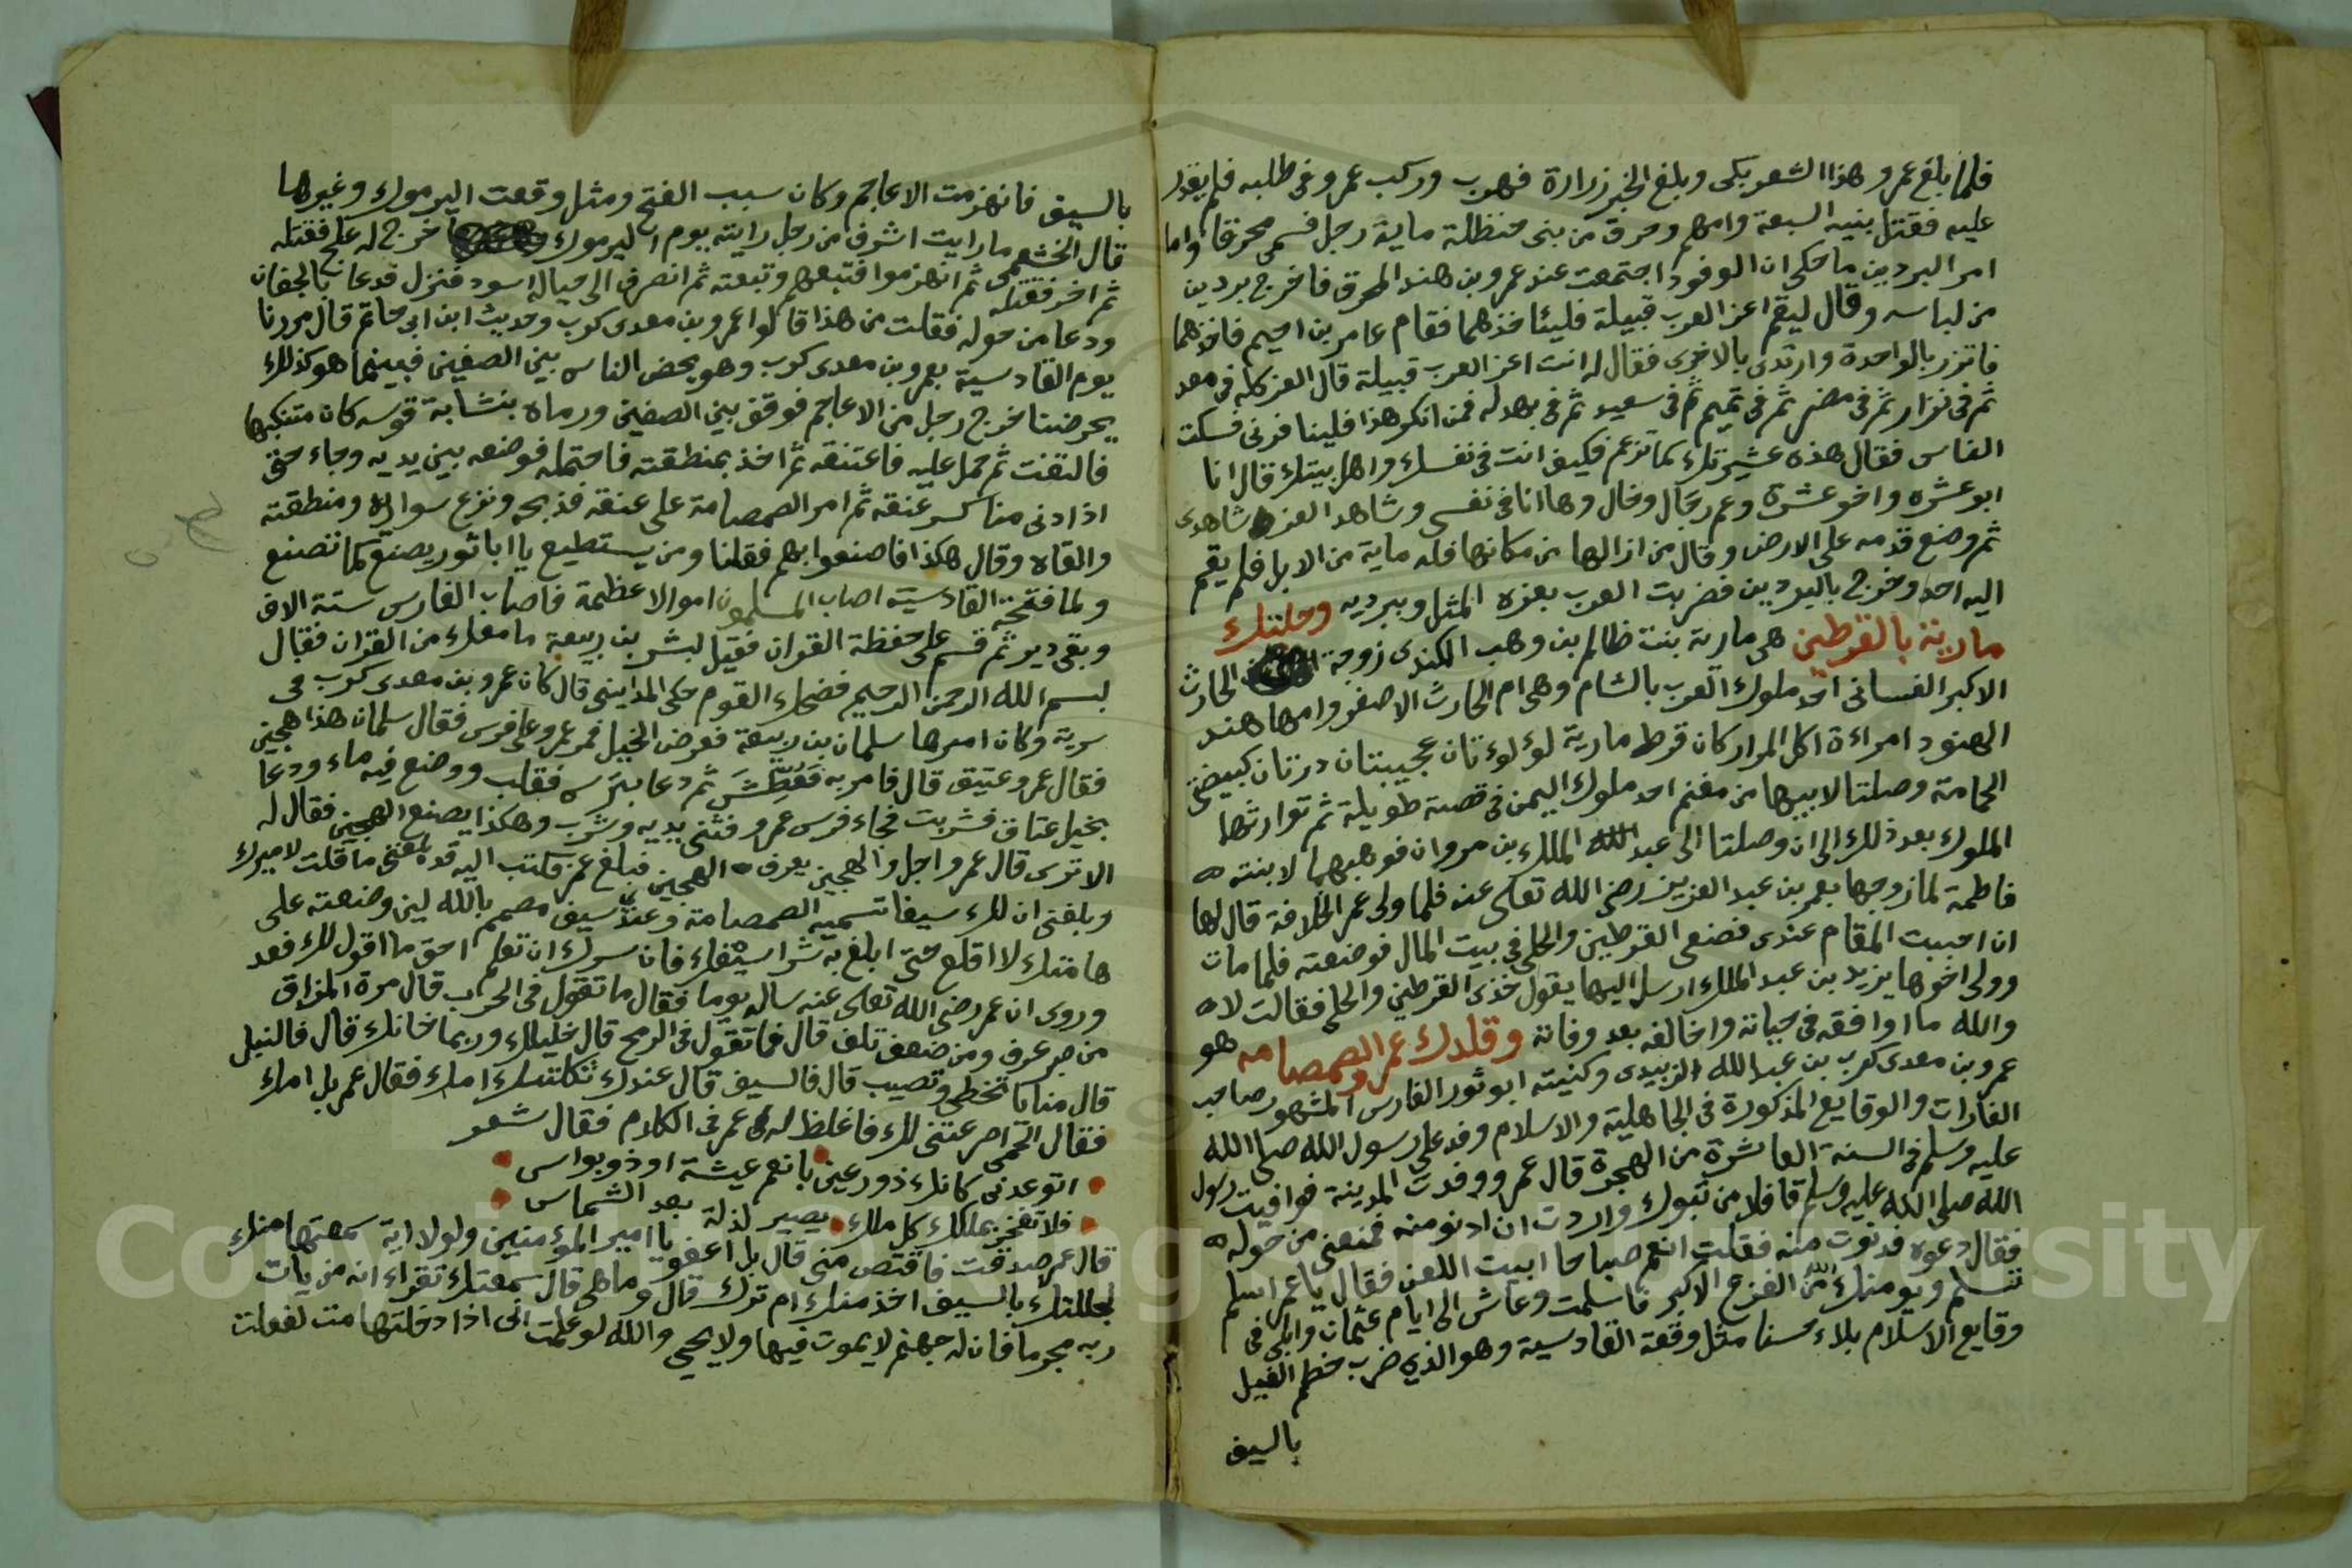 فلما بلغ عمرو هذا الشعر بكى وبلغ الخبر زرارة فهرب وركب عمرو في طلبه فلم يقدر
عليه فقتل بنيه السبعة وامهم وحرق من بني حنظلة ماية رجل فسمى محرقا واما
امر البردين ما حكى ان الوفود اجتمعت عند عمرو بن هند المحرق فاخرج بردين
من لباسه وقال ليقم اعز العرب قبيلة فليئاخذهما فقام عامر بن احيم فاخذهما
فاتزر بالواحدة وارتدى بالاخرى فقال له انت اعز العرب قبيلة قال العز كله في معد
ثم في نزار ثم في مضر ثم في تميم ثم في سعيد ثم في بهدله فمن انكر هذا فلينافرني فسكت
الناس فقال هذه عشيرتك كما تزعم فكيف انت في نفسك واهل بيتك قال انا
ابو عشره واخو عشرة وعم رجال وخال وها انا في نفسى وشاهد العز شاهدى
ثم وضع قدمه على الارض وقال من ازالها من مكانها فله ماية من الابل فلم يقم
اليه احد وخرج بالبردين فضربت العرب بعزه المثل وببرديه وحلتك
مارية بالقرطين هي مارية بنت ظالم بن وهب الكندى زوجة الحارث
الاكبر الغساني احد ملوك العرب بالشام وهى ام الحارث الاصغر وامها هند
الهنود امراءة اكل المرار كان قرط مارية لوءلوءتان عجيبتان درتان كبيضتى
الحامة وصلتا لابيها من مغنم احد ملوك اليمن في قصة طويلة ثم توارثها
الملوك بعد ذلك الى ان وصلتا الى عبد الملك بن مروان فوهبهما لابنته
فاطمة لما زوجها بعمر بن عبد العزيز رضى الله تعالى عنه فلما ولى عمر الخلافة قال لها
ان احببت المقام عندى فضعى القرطين والحلى في بيت المال فوضعته فلما مات
وولى اخوها يزيد بن عبد الملك ارسل اليها يقول خذى القرطين والحلى فقالت لا
والله ما اوافقه في حياته واخالفه بعد وفاته وقلدك عمرو الصمصامه هو
عمرو بن معدى كرب بن عبد الله الزبيدى وكنيته ابو ثور الفارس المشهور صاحب
الغارات والوقايع المذكورة في الجاهلية والاسلام وفد على رسول الله صلى الله
عليه وسلم في السنة العاشرة من الهجرة قال عمرو وفدت المدينة فوافيت رسول
الله صلى الله عليه وسلم قافلا من تبوك واردت ان ادنو منه فمنعنى من حوله
فقال دعوه فدنوت منه فقلت انعم صباحا ابيت اللعن فقال يا عمر اسلم
تسلم ويومنك الله من الفزع الاكبر فاسلمت وعاش الى ايام عثمان وابلى في
وقايع الاسلام بلاء حسنا مثل وقعة القادسية وهو الذي ضرب خطم الفيل
بالسيف
بالسيف فانهزمت الاعاجم وكان سبب الفتح ومثل وقعت اليرموك وغيرها
قال الخثعمى ما رايت اشرف من رجل رايته يوم اليرموك خرج له علج فقتله
ثم اخر فقتله ثم انهزموا فتبعهم وتبعته ثم انصرف الى حباله اسود فنزل فدعا بالجفان
ودعا من حوله فقلت من هذا قالوا عمرو بن معدى كرب وحديث ابن ابى حاتم قال مررنا
يوم القادسية بعمرو بن معدى كرب وهو يحض الناس بين الصفين فبينما هو كذلك
يحرضنا خرج رجل من الاعاجم فوقف بين الصفين ورماه بنشابة قوسه كان متنكبها
فالتفت ثم حمل عليه فاعتنقه ثم اخذ بمنطقته فاحتمله فوضعه بين يديه وجاء حتى
اذا دنى منا كسر عنقه ثم امر الصمصامة على عنقه فذبحه ونزع سواره ومنطقته
والقاه وقال هكذا فاصنعوا بهم فقلنا ومن يستطيع يا ابا ثور يصنع كما تصنع
ولما فتحت القادسية اصاب المسلمون اموالا عظيمة فاصاب الفارس ستة الاف
وبقى دير ثم قسم على حفظة القران فقيل لبشر بن ربيعة ما معك من القران فقال
بسم الله الرحمن الرحيم فضحك القوم حكى المداينى قال كان عمرو بن معدى كرب في
سرية وكان اميرها سلمان بن ربيعة فعرض الخيل فمر عمرو على فرس فقال سلمان هذا هجين
فقال عمرو عتيق قال فامر به فعطش ثم دعا بترس فقلب ووضع فيه ماء ودعا
بخيل عتاق فشربت فجاء فرس عمرو فثنى يديه وشرب وهكذا يصنع الهجين فقال له
الا ترى قال عمرو اجل والهجين يعرف الهجين فبلغ عمر فكتب اليه قد بلغنى ما قلت لاميرك
وبلغنى ان لك سيفا تسميه الصمصامة وعندى سيف مصمم بالله لين وضعته على
هامتك لا اقلع حتى ابلغ به شراسيفك فان سرك ان تعلم احق ما اقول لك فعد
وروى ان عمر رضى الله تعالى عنه ساله يوما فقال ما تقول في الحرب قال مرة المذاق
من صبر عرف ومن ضعف تلف قال فما تقول في الرمح قال خليلك وربما خانك قال فالنبل
قال منايا تخطى وتصيب قال فالسيف قال عندك ثكلتك امك فقال عمر بل امك
فقال الحمى اصرعتنى لك فاغلظ له عمر في الكلام فقال شعر
اتوعدنى كانك ذو رعين بانعم عيشة او ذو نواس
فلا تفخر بملكك كل ملك يصير لذلة بعد الشماس
قال عمر صدقت فاقتص منى قال بل اعفو يا امير الموءمنين ولولا اية سمعتها منك
لجللتك بالسيف اخذ منك ام ترك قال وما هي قال سمعتك تقراء انه من يات
ربه مجرما فان له جهنم لا يموت فيها ولا يحيى والله لو علمت انى اذا دخلتها مت لفعلت